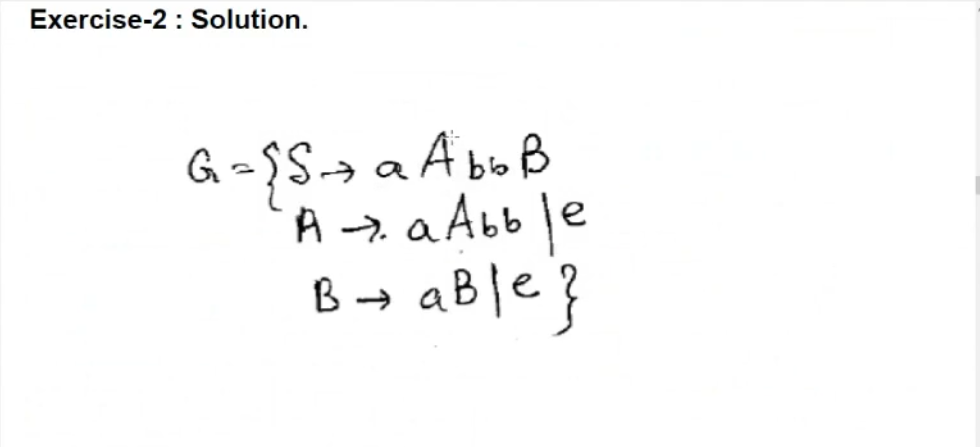 Exercise-2 : Solution.
G = {S → a A bb B
A → aAbb | e
B → aB | e }